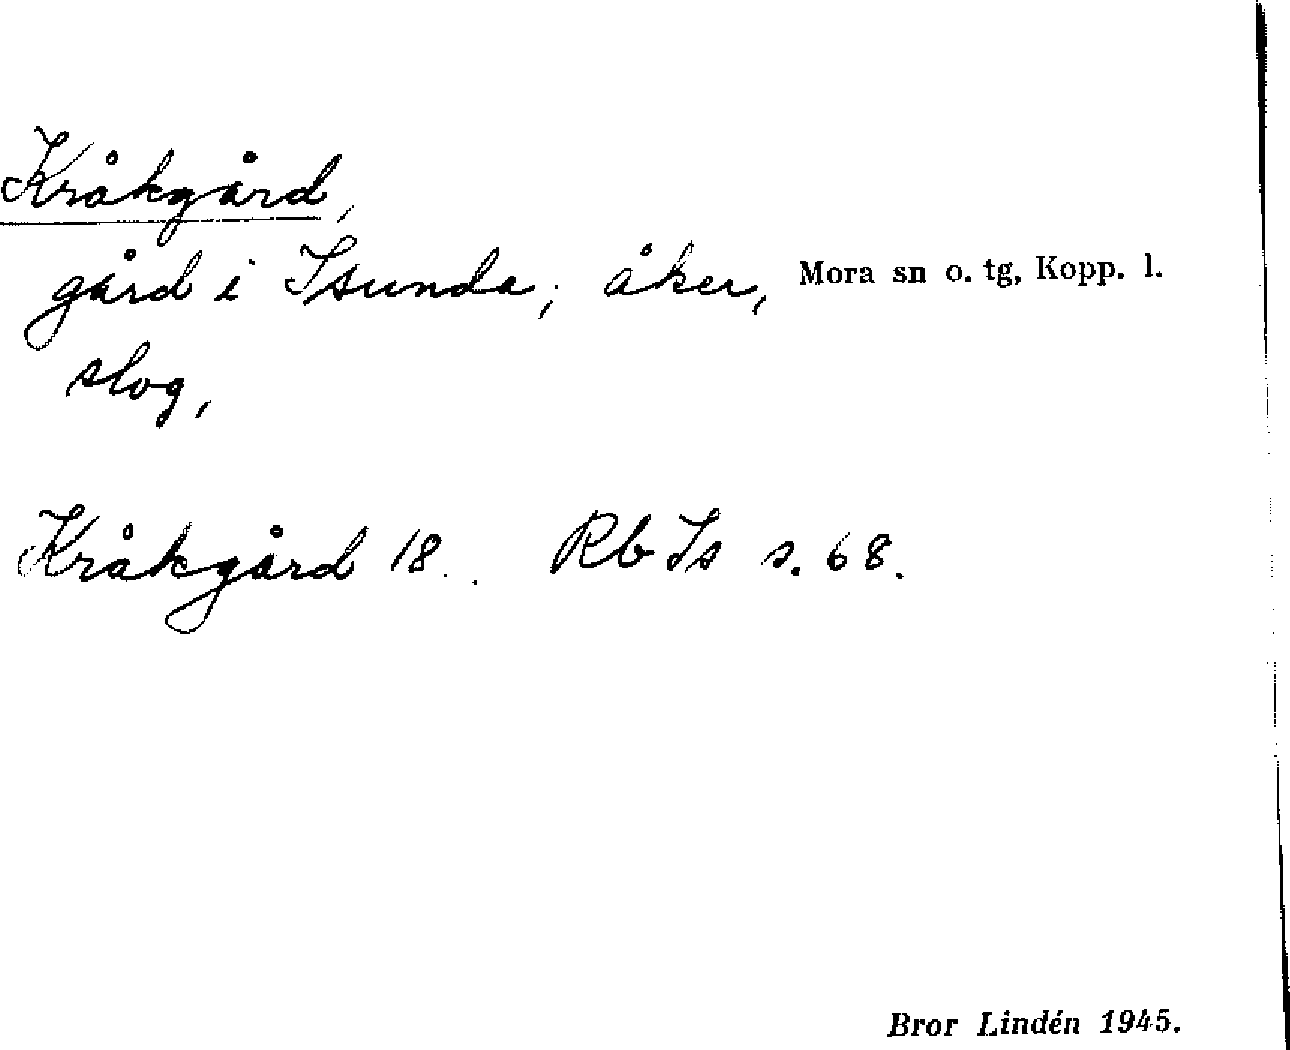 Kråkgård,
gård i Isunda; åker, Mora sn o. tg, Kopp. l.
slog,
Kråkgård 18. . Rb Is s. 68.
Bror Lindén 1945.